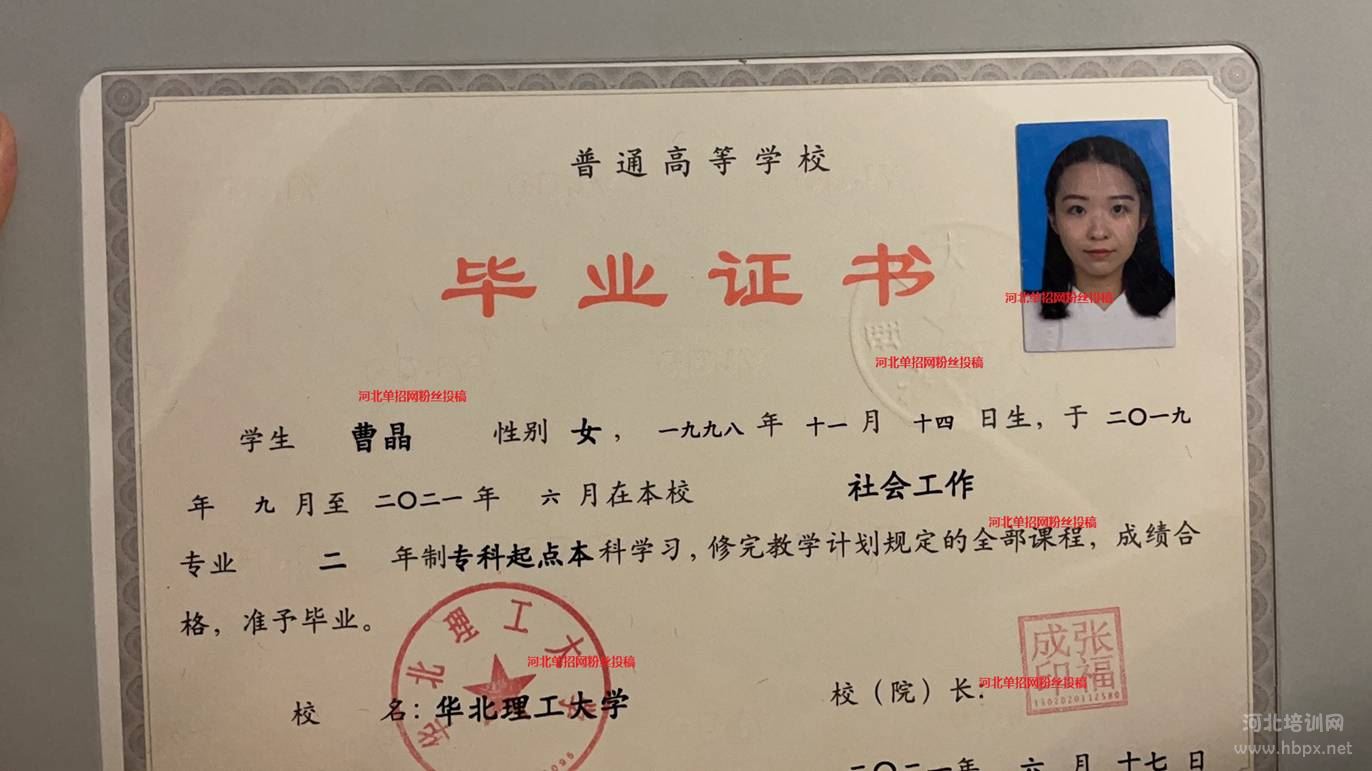 普通高等学校
毕业证书
河北单招网粉丝投稿
河北单招网粉丝投稿
河北单招网粉丝投稿
学生 曹晶 性别 女，一九九八年 十一月 十四 日生，于 二〇一九
年 九 月至 二〇二一年 六 月在本校 社会工作
河北单招网粉丝投稿
专业 二 年制专科起点本科学习，修完教学计划规定的全部课程，成绩合
格，准予毕业。
华北理工大学
河北单招网粉丝投稿
张福成印
河北单招网粉丝投稿
校 名：华北理工大学 校（院）长：
二〇二一年 六 月 十七 日
河北培训网
www.hbpx.net